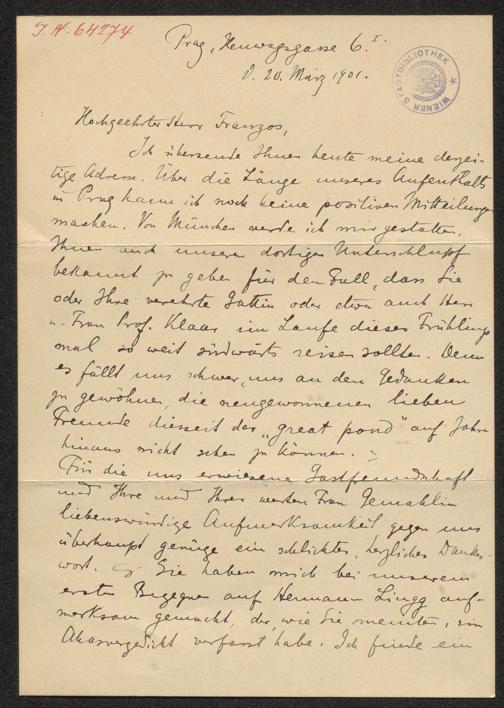 J. N. 64274
Prag, Heuwagsgasse 6.I
d. 20. März 1901.
WIENER STADTBIBLIOTHEK
Hochgeehrter Herr Franzos,
Ich übersende Ihnen heute meine derzei-
tige Adresse. Über die Länge unseres Aufenthalts
in Prag kann ich noch keine positiven Mitteilungen
machen. Von München werde ich mir gestatten,
Ihnen auch unseren dortigen Unterschlupf
bekannt zu geben für den Fall, dass Sie
oder Ihre verehrte Gattin oder etwa auch Herr
u. Frau Prof. Klaar im Laufe dieses Frühlings
mal so weit südwärts reisen sollten. Denn
es fällt uns schwer, uns an den Gedanken
zu gewöhnen, die neugewonnenen lieben
Freunde diesseit des „great pond" auf Jahre
hinaus nicht sehen zu können.
Für die uns erwiesene Gastfreundschaft
und Ihre und Ihrer werten Frau Gemahlin
liebenswürdige Aufmerksamkeit gegen uns
überhaupt genüge ein schlichtes, herzliches Dankes-
wort. Sie haben mich bei unserem
ersten Begegnen auf Hermann Lingg auf-
merksam gemacht, der, wie Sie meinten, ein
Ahasvergedicht verfasst habe. Ich finde ein